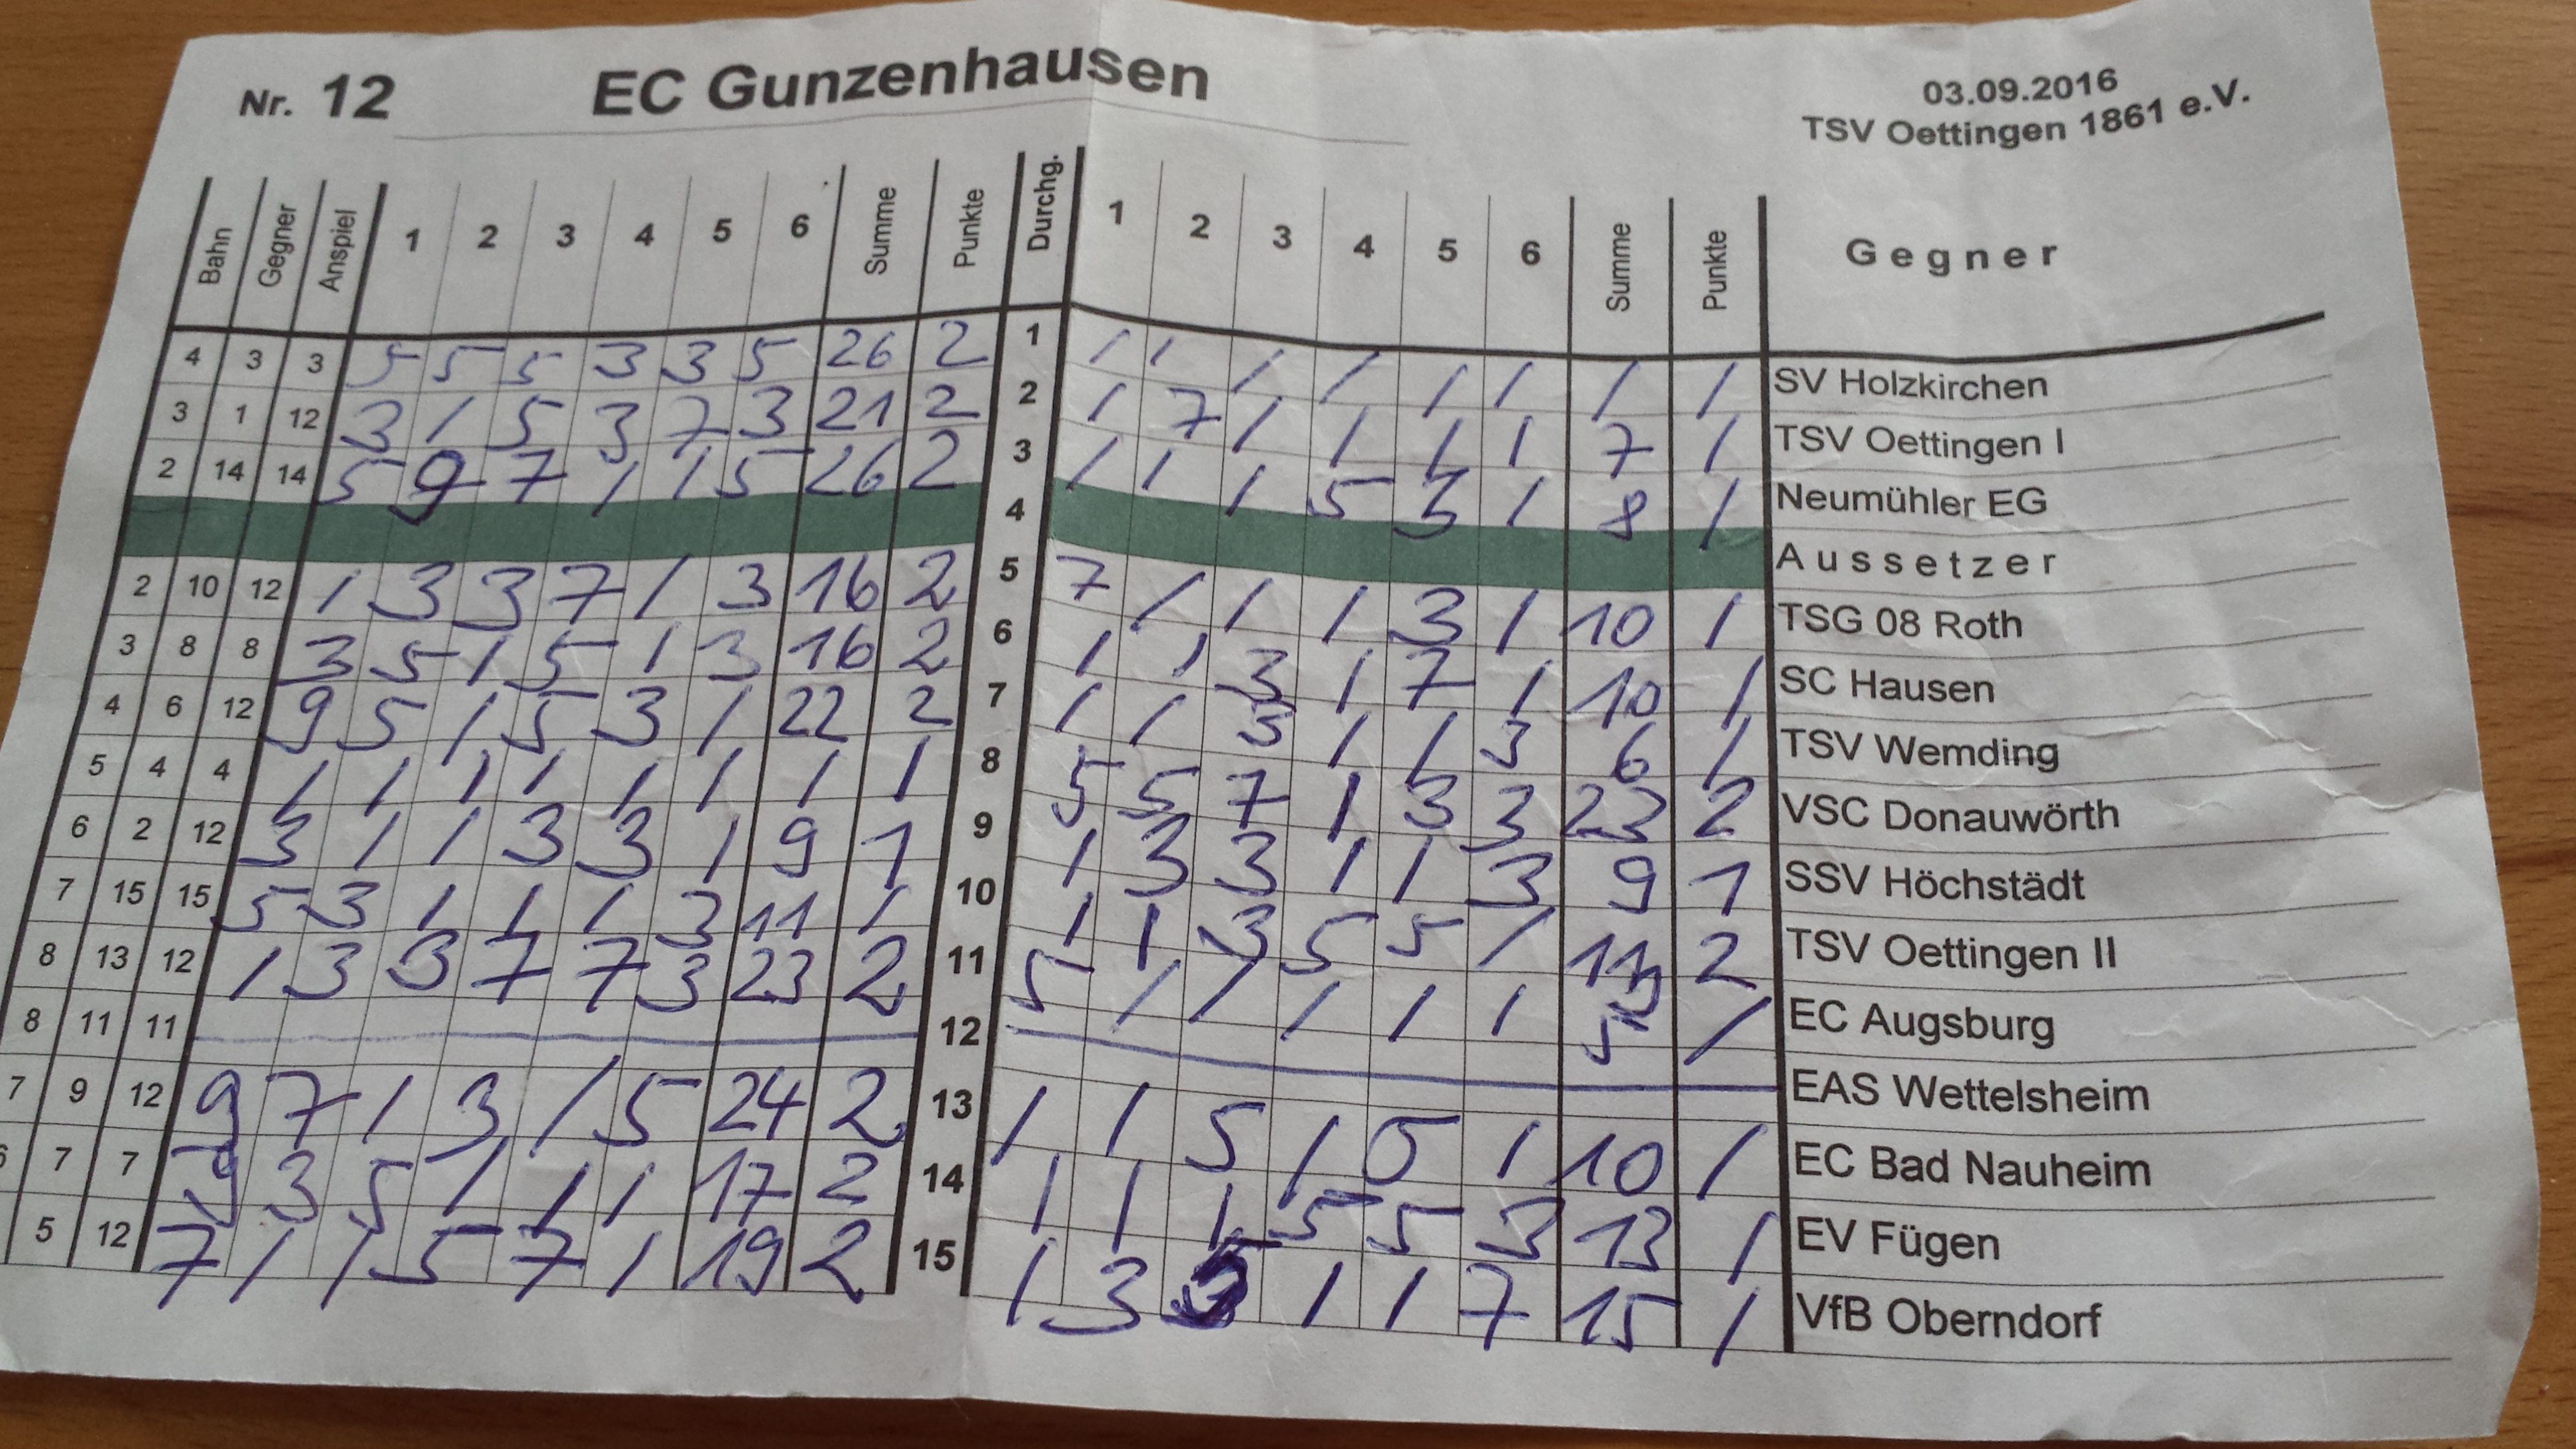 Nr. 12 EC Gunzenhausen 03.09.2016
TSV Oettingen 1861 e.V.
Bahn Gegner Anspiel 1 2 3 4 5 6 Summe Punkte Durchg. 1 2 3 4 5 6 Summe Punkte Gegner
4 3 3 5 5 5 3 3 5 26 2 1 / / / / / / / / SV Holzkirchen
3 1 12 3 / 5 3 7 3 21 2 2 / 7 / / / / 7 / TSV Oettingen I
2 14 14 5 9 7 / / 5 26 2 3 / / / 5 3 / 8 / Neumühler EG
4 Aussetzer
2 10 12 / 3 3 7 / 3 16 2 5 7 / / / 3 / 10 / TSG 08 Roth
3 8 8 3 5 / 5 / 3 16 2 6 / / 3 / 7 / 10 / SC Hausen
4 6 12 9 5 / 5 3 / 22 2 7 / / 3 / / 3 6 / TSV Wemding
5 4 4 / / / / / / / / 8 5 5 7 / 3 3 23 2 VSC Donauwörth
6 2 12 3 / / 3 3 / 9 1 9 / 3 3 / / 3 9 1 SSV Höchstädt
7 15 15 5 3 / / / 3 11 / 10 / / 3 5 5 / 13 2 TSV Oettingen II
8 13 12 / 3 3 7 7 3 23 2 11 5 / / / / / 5 / EC Augsburg
8 11 11 12 EAS Wettelsheim
7 9 12 9 7 / 3 / 5 24 2 13 / / 5 / 5 / 10 / EC Bad Nauheim
6 7 7 9 3 5 / / / 17 2 14 / / / 5 5 3 13 / EV Fügen
5 12 7 / / 5 7 / 19 2 15 / 3 5 / / 7 15 / VfB Oberndorf